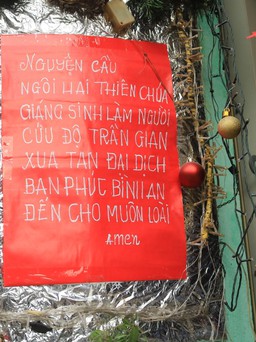 NGUYỆN CẦU
NGÔI HAI THIÊN CHÚA
GIÁNG SINH LÀM NGƯỜI
CỨU ĐỘ TRẦN GIAN
XUA TAN ĐẠI DỊCH
BAN PHÚC BÌNH AN
ĐẾN CHO MUÔN LOÀI
Amen